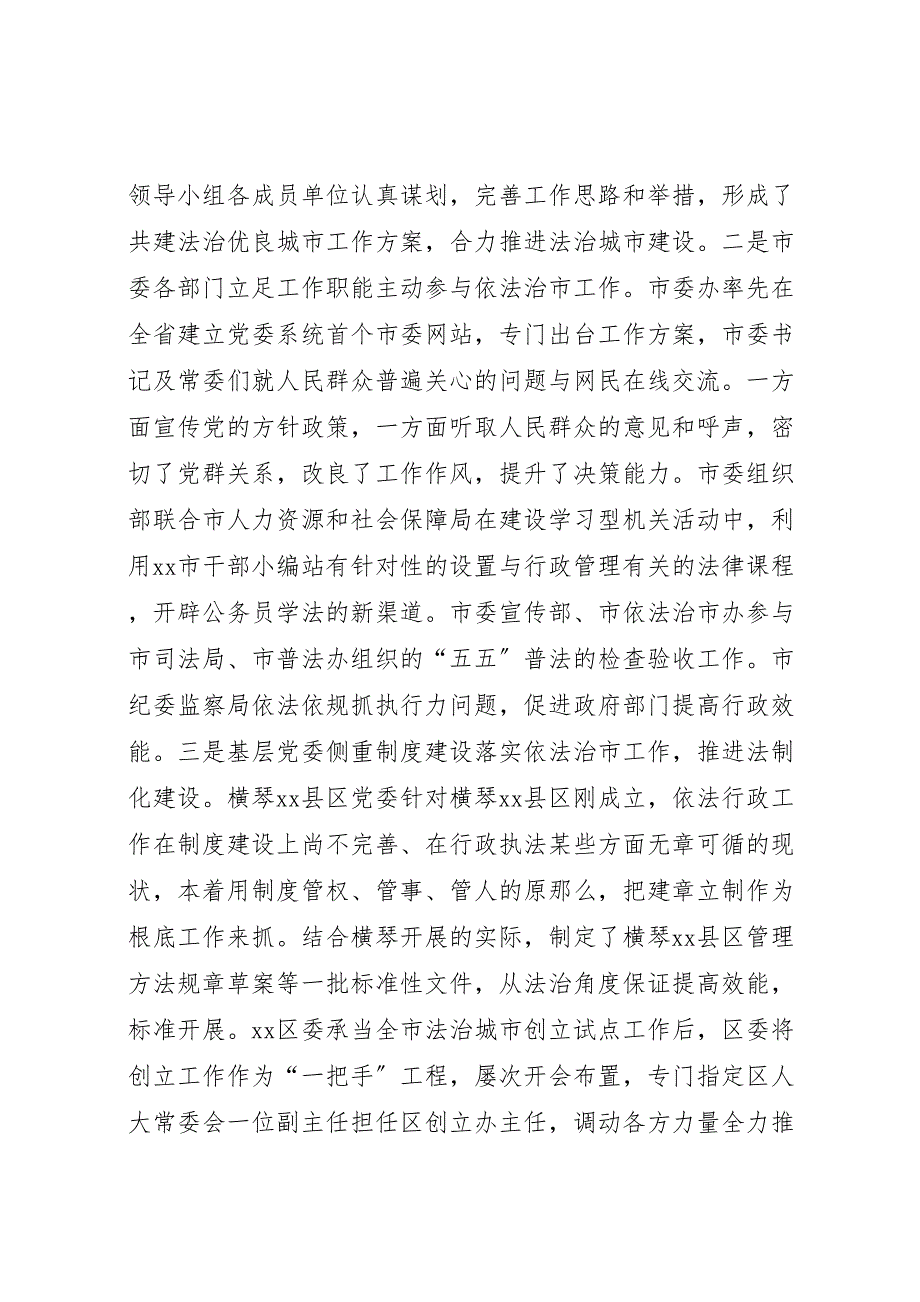 领导小组各成员单位认真谋划，完善工作思路和举措，形成了
共建法治优良城市工作方案，合力推进法治城市建设。二是市
委各部门立足工作职能主动参与依法治市工作。市委办率先在
全省建立党委系统首个市委网站，专门出台工作方案，市委书
记及常委们就人民群众普遍关心的问题与网民在线交流。一方
面宣传党的方针政策，一方面听取人民群众的意见和呼声，密
切了党群关系，改良了工作作风，提升了决策能力。市委组织
部联合市人力资源和社会保障局在建设学习型机关活动中，利
用xx市干部小编站有针对性的设置与行政管理有关的法律课程
，开辟公务员学法的新渠道。市委宣传部、市依法治市办参与
市司法局、市普法办组织的“五五〞普法的检查验收工作。市
纪委监察局依法依规抓执行力问题，促进政府部门提高行政效
能。三是基层党委侧重制度建设落实依法治市工作，推进法制
化建设。横琴xx县区党委针对横琴xx县区刚成立，依法行政工
作在制度建设上尚不完善、在行政执法某些方面无章可循的现
状，本着用制度管权、管事、管人的原那么，把建章立制作为
根底工作来抓。结合横琴开展的实际，制定了横琴xx县区管理
方法规章草案等一批标准性文件，从法治角度保证提高效能，
标准开展。xx区委承当全市法治城市创立试点工作后，区委将
创立工作作为“一把手〞工程，屡次开会布置，专门指定区人
大常委会一位副主任担任区创立办主任，调动各方力量全力推